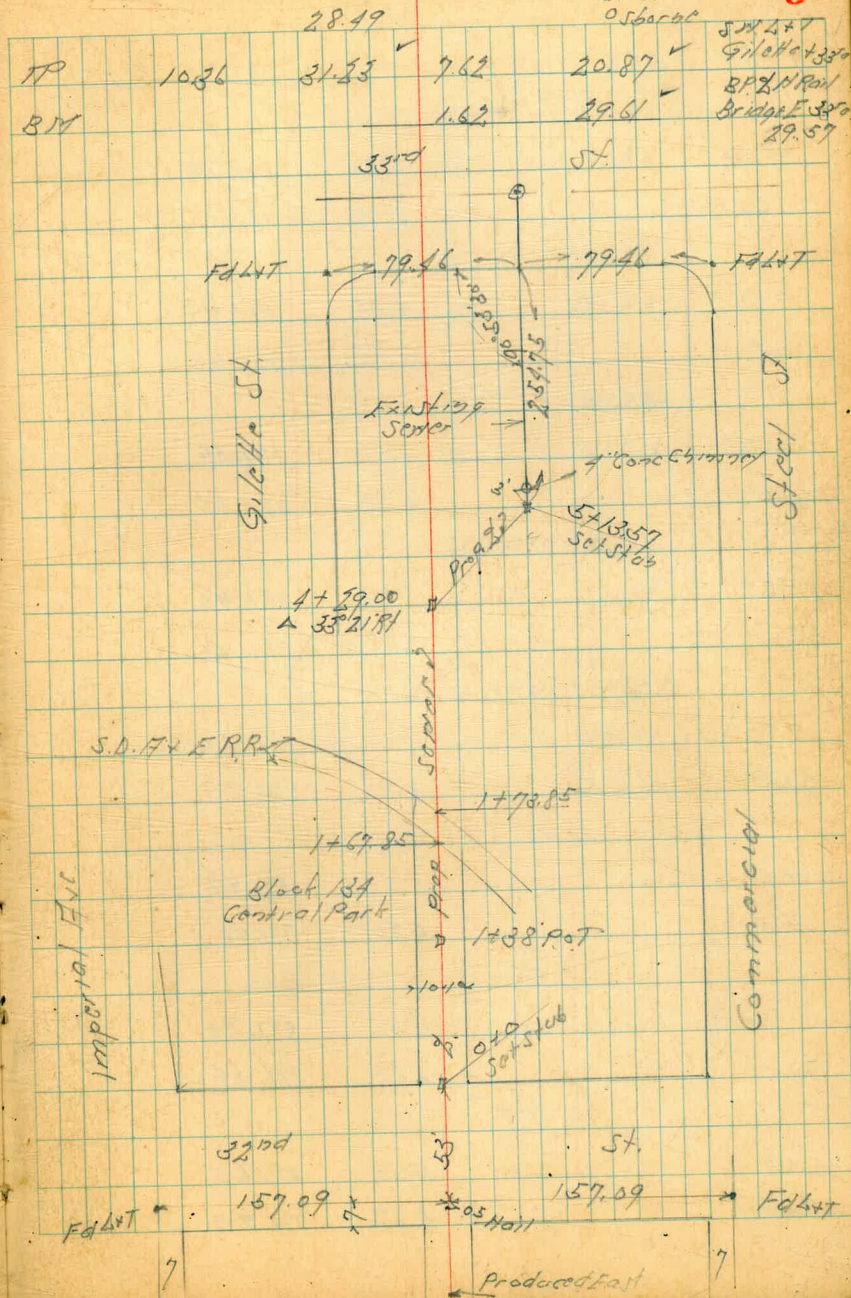 28.49 Osborne
TP 10.36 31.23 7.62 20.87 ✓ Gilette + 33rd
BM 1.62 29.61 Bridge E 33rd
29.57
33rd St.
Fd L+T 79.46 79.46 Fd L+T
254.75
Gilette St.
Existing
Sewer
4" Conc Chimney
3'
5+13.57
Set Stub
Prop.
4+29.00
Δ 33°21' Rt
Sewer
S.D. A+E R.R.
1+73.85
1+67.85
Block 134
Central Park
Prop
Imperial Ave
Commercial
1+38 P.O.T
0+0
Set Stub
32nd 53' St.
Fd L+T 157.09 157.09 Fd L+T
7
.05 Nail
7 7
Produced East